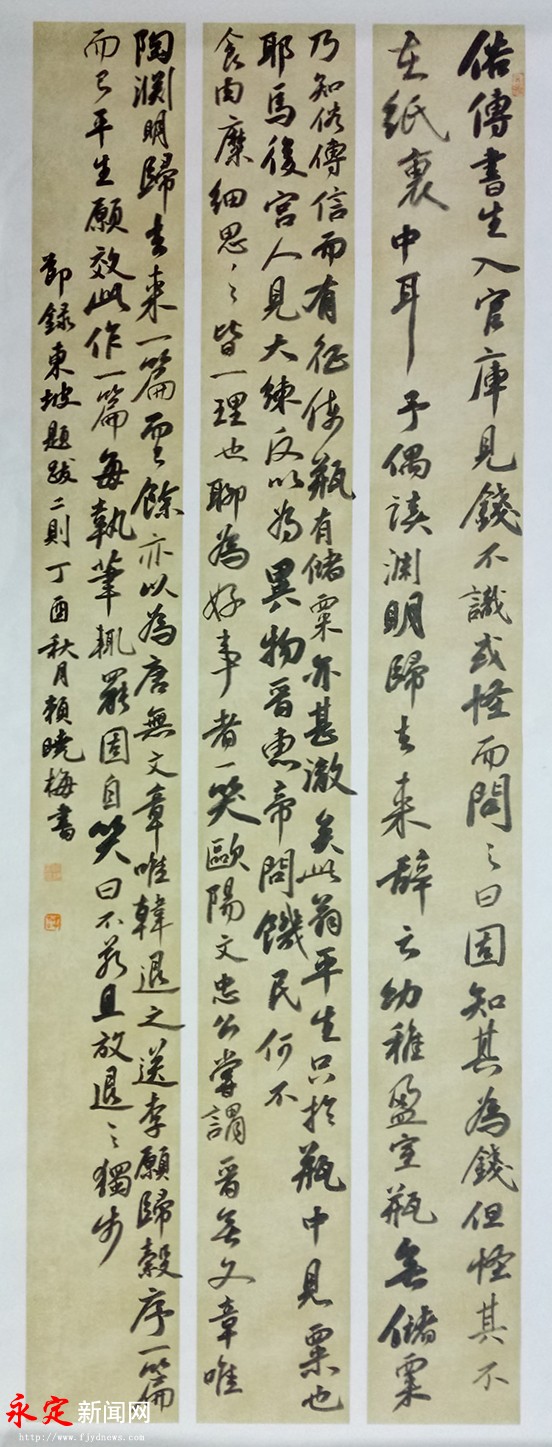 俗傳書生入官庫見錢不識或怪而問之曰固知其為錢但怪其不
在紙裹中耳予偶讀淵明歸去来辭云幼稚盈室瓶無儲粟
乃知俗傳信而有征使瓶有儲粟亦甚澈矣此翁平生只於瓶中見粟也
耶馬後宮人見大練反以為異物晋惠帝問饑民何不
食肉糜細思之皆一理也聊為好事者一笑歐陽文忠公嘗謂晋無文章唯
陶渊明歸去来一篇而已餘亦以為唐無文章唯韓退之送李願歸穀序一篇
而已平生願效此作一篇每執筆輒罷因自笑曰不若且放退之獨步
節録東坡題跋二則丁酉秋月賴曉梅書
永定新闻网
http://www.fjydnews.com